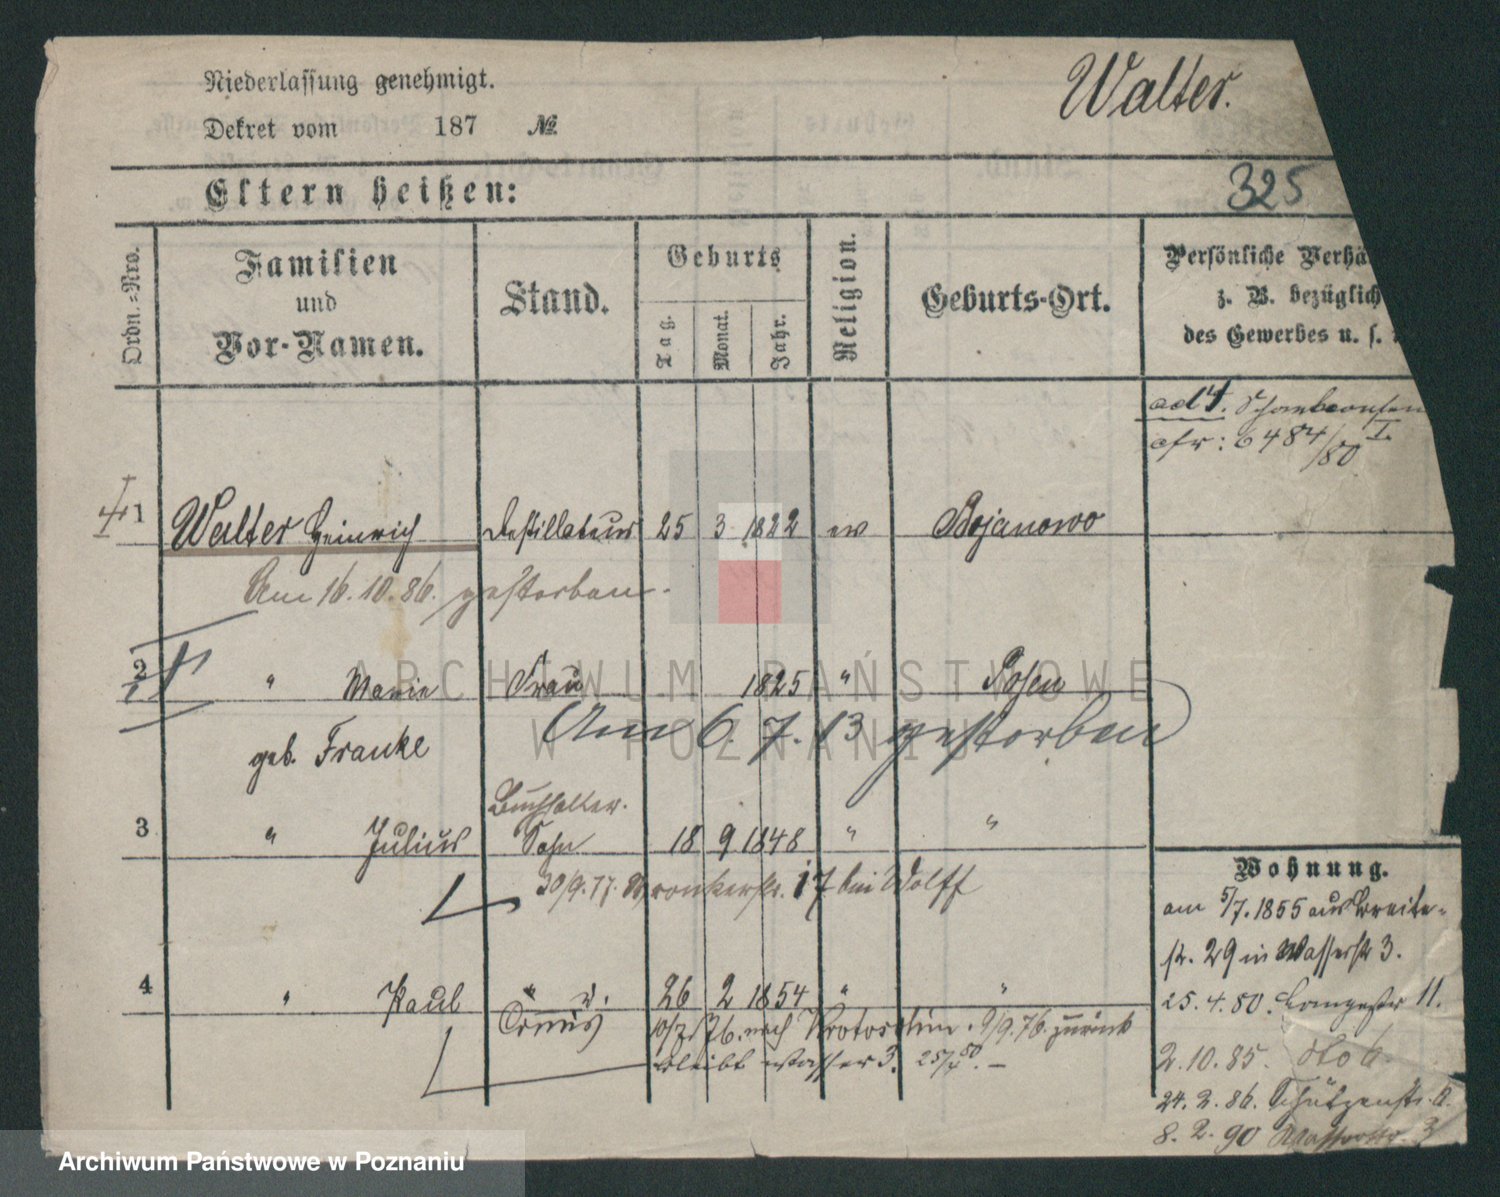 Niederlassung genehmigt.
Walter.
Dekret vom 187 №
325
Eltern heißen:
Ordn.-Nro.
Familien
und
Vor-Namen.
Stand.
Geburts
Tag.
Monat.
Jahr.
Religion.
Geburts-Ort.
Persönliche Verhä
z. B. bezüglich
des Gewerbes u. s.
ad 4.
cfr: 6484/80 I.
1 Walter Heinrich Destillateur 25 3 1822 ev Bojanowo
Am 16.10.86. gestorben.
2 " Marie Frau 1825 " Posen
Am 6.7.13 gestorben
geb. Franke
Buchhalter.
3 " Julius Sohn 18 9 1848 " "
30/9.77. 17 bei Wolff
Wohnung.
am 5/7.1855 aus Breite-
str. 29 in Wasserstr 3.
4 " Paul " 26 2 1854 " "
25.4.80. Langestr 11.
10/7.76. nach Krotoschin. 9/9.76. zurück
bleibt Wasser 3. 25/4 80. –
2.10.85. dto 6.
24.2.86. Schützenstr. 6.
8.2.90 Wasserstr. 3
ARCHIWUM PAŃSTWOWE
W POZNANIU
Archiwum Państwowe w Poznaniu